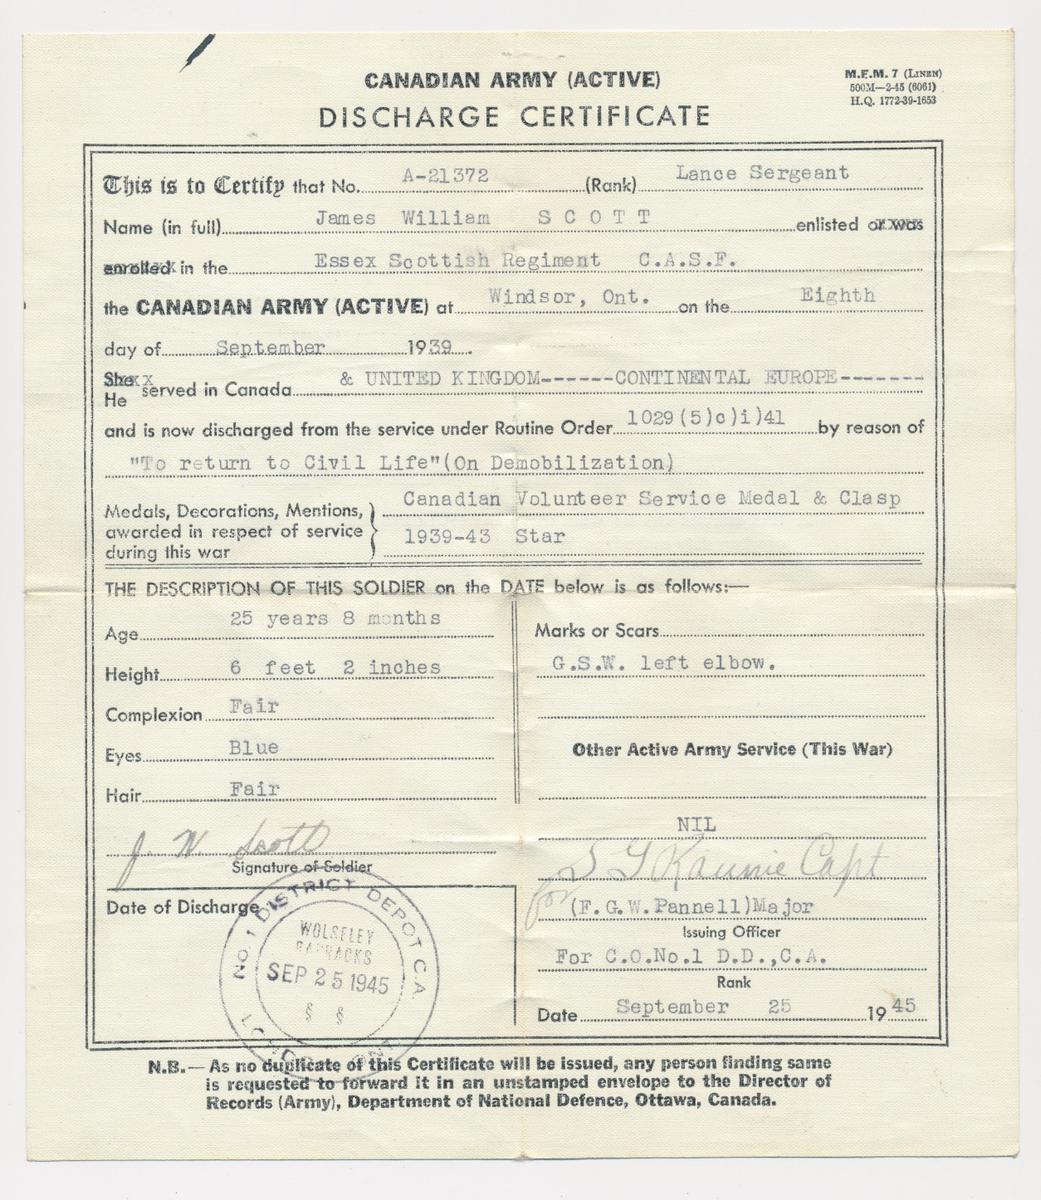 CANADIAN ARMY (ACTIVE)
M.F.M. 7 (LINEN)
500M—2-45 (6061)
H.Q. 1772-39-1653
DISCHARGE CERTIFICATE
This is to Certify that No. A-21372 (Rank) Lance Sergeant
Name (in full) James William SCOTT enlisted or was
enrolled in the Essex Scottish Regiment C.A.S.F.
the CANADIAN ARMY (ACTIVE) at Windsor, Ont. on the Eighth
day of September 1939.
She
He served in Canada & UNITED KINGDOM------CONTINENTAL EUROPE-------
and is now discharged from the service under Routine Order 1029(5)c)i)41 by reason of
"To return to Civil Life"(On Demobilization)
Medals, Decorations, Mentions,
awarded in respect of service
during this war
Canadian Volunteer Service Medal & Clasp
1939-43 Star
THE DESCRIPTION OF THIS SOLDIER on the DATE below is as follows:—
Age 25 years 8 months
Height 6 feet 2 inches
Complexion Fair
Eyes Blue
Hair Fair
J. W Scott
Signature of Soldier
Date of Discharge
NO. 1 DISTRICT DEPOT C.A.
WOLSELEY
BARRACKS
SEP 25 1945
§ §
LONDON ONT
Marks or Scars
G.S.W. left elbow.
Other Active Army Service (This War)
NIL
Capt
for (F.G.W.Pannell)Major
Issuing Officer
For C.O.No.1 D.D.,C.A.
Rank
Date September 25 1945
N.B.—As no duplicate of this Certificate will be issued, any person finding same
is requested to forward it in an unstamped envelope to the Director of
Records (Army), Department of National Defence, Ottawa, Canada.